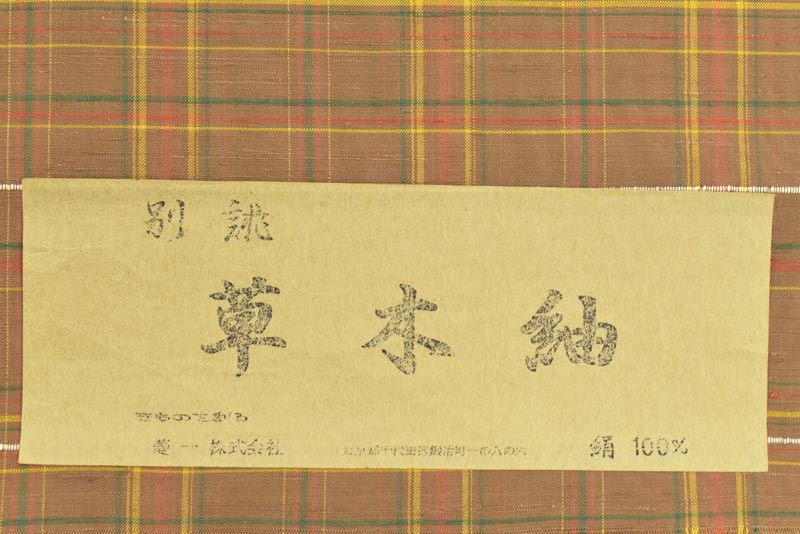 別誂
草木紬
きものたから
菱一株式会社 東京都千代田区鍛冶町一の八の六 絹 100%